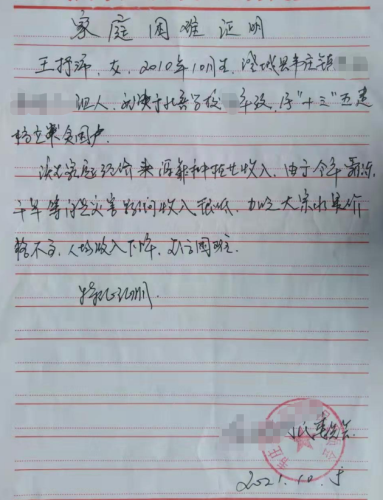 家庭困难证明
王抒沛，女，2010年10月生，澄城县韦庄镇
组人，就读于北寨学校 年级，属“十三五”建
档立卡贫困户
该家庭经济来源靠种植业收入，由于今年霜冻，
干旱等自然灾害影响收入很低，加之大宗水果价
格不高，人均收入下降，生活困难。
特此证明
村民委员会
2021.10.5